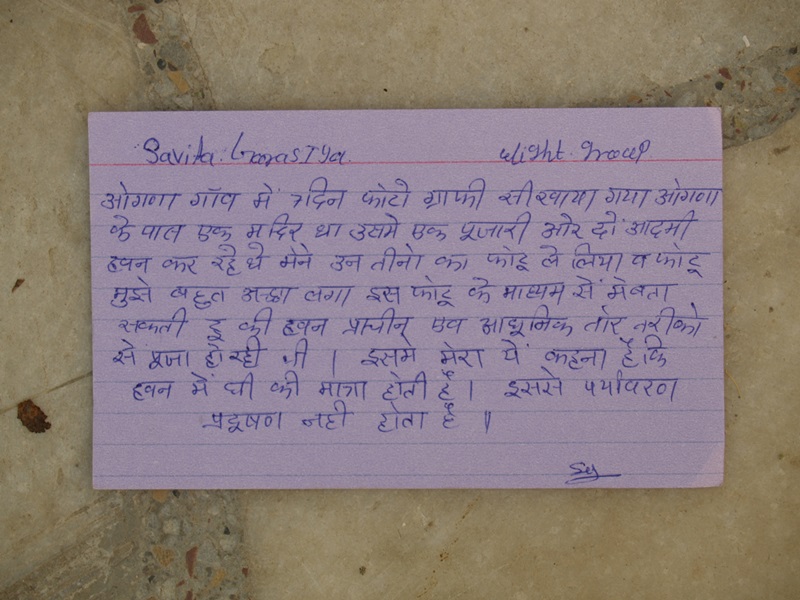 Savita. Garastya. Light. Group
ओगणा गॉव में 7 दिन फोटो ग्राफी सीखाया गया ओगणा
के पास एक मंदिर था उसमे एक पूजारी ओर दो आदमी
हवन कर रहे थे मेने उन तीनो का फोटू ले लिया व फोटू
मुझे बहुत अच्छा लगा इस फोटू के माध्यम से में बता
सकती हू की हवन प्राचीन एव आधुनिक तोर तरीको
से पूजा हो रही थी । इसमे मेरा ये कहना है कि
हवन में घी की मात्रा होती है । इससे पर्यावरण
प्रदूषण नही होता है ॥